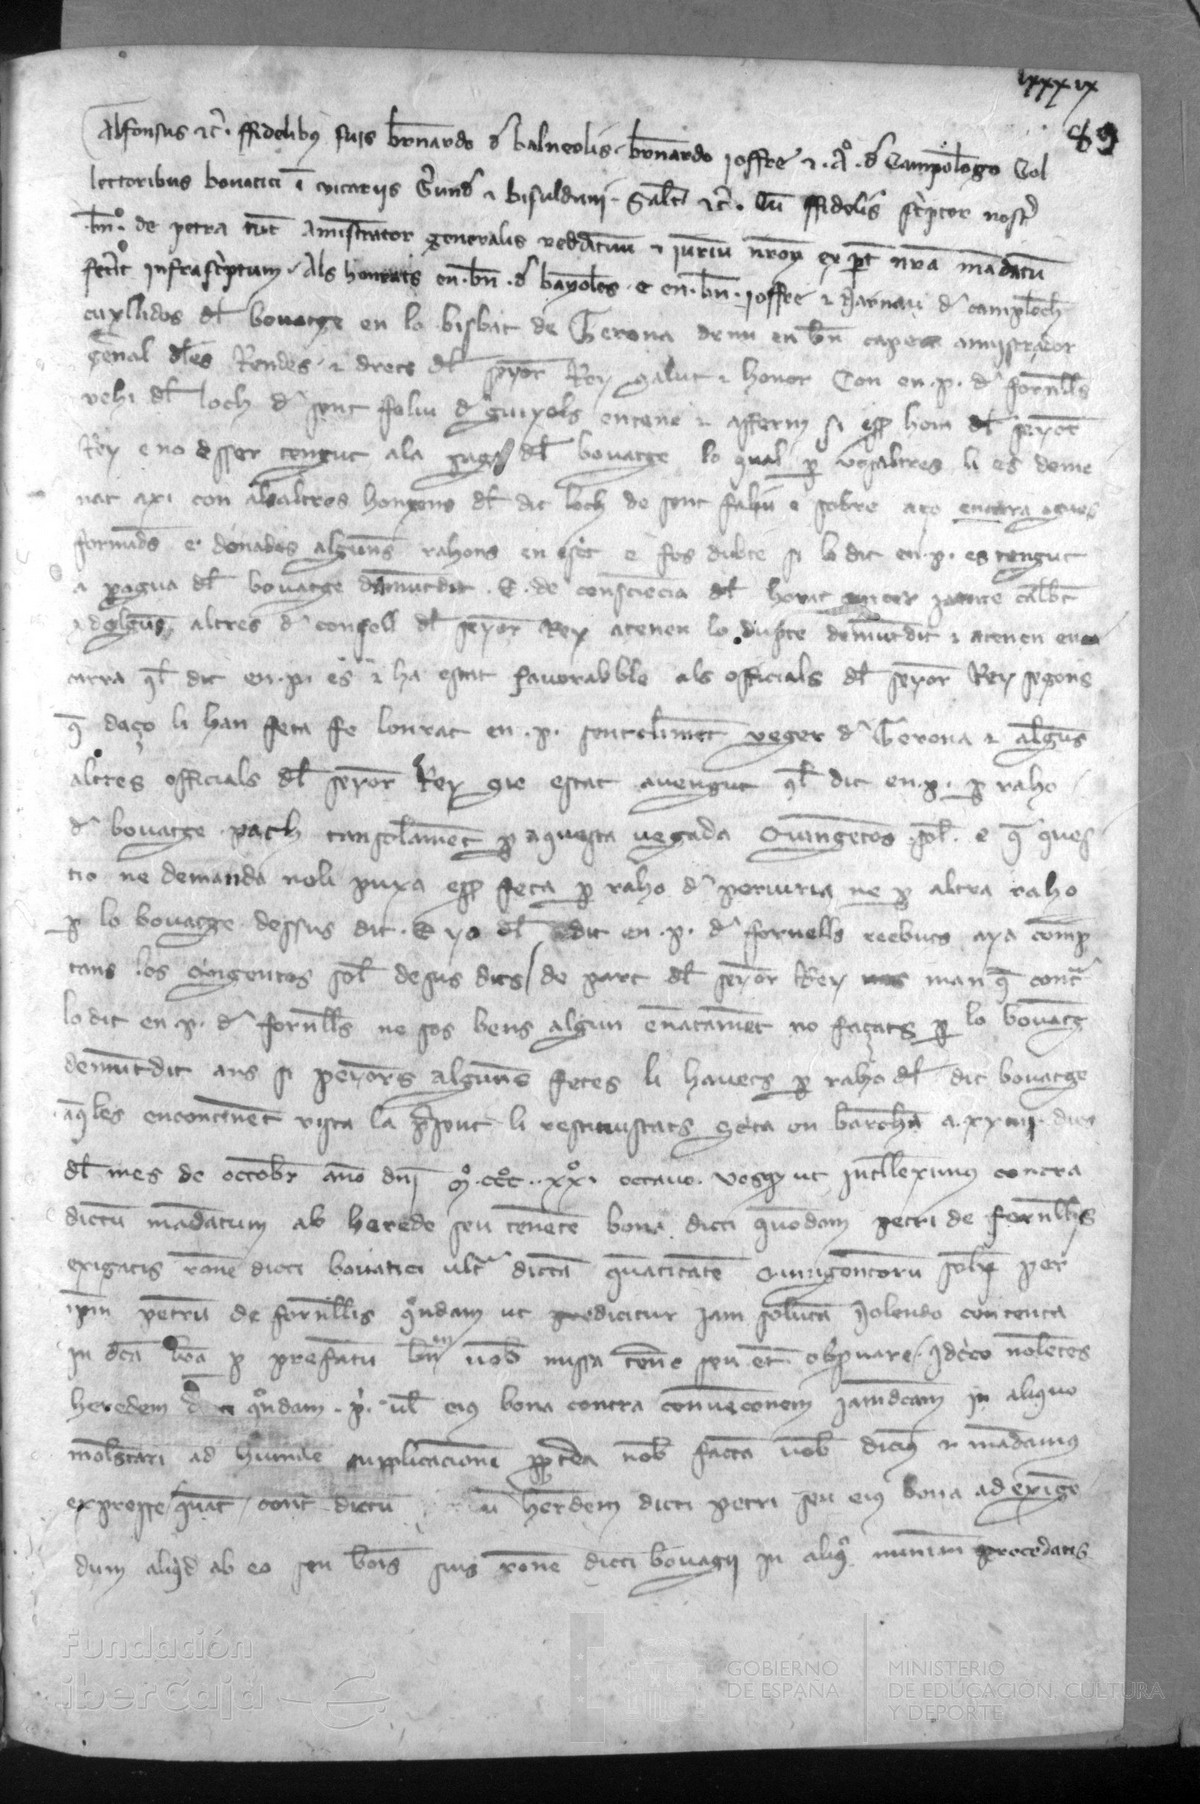 lxxxix
89
Alfonsus etc. ffidelibus suis bernardo d balneolis bernardo Joffre et A. d Campolongo Col
lectoribus bovatici i vicariis Gerund et bisulduni. Salt etc. Cu ffidelis scriptor nostr
bn. de petra tuc Amistrator generalis reddituu et iurium nrorum ex pt nra mandatu
fecit infrascriptum. Als honrats en bn d bayoles e en bn joffre et Narnau d camploch
cuyllidos dl bovatge en lo bisbat de Gerona de mi en bn amistrador
general dles Rendes et drets dl senyor Rey salut et honor Con en p. d fornells
vehi dl loch d sent feliu d guixols entene et afferm si esser hom dl senyor
Rey e no esser tengut ala paga dl bovatge lo qual p vosaltres li es dema
nat axi con als altres homens dl dit loch de sent feliu e sobre aço encara agues
formads e donades algunes rahons en escrit e fos dubte si lo dit en p. es tengut
a pagua dl bovatge demuntdit. E. de consciencia dl honrat
et dalguns altres d consell dl senyor Rey atenen lo dupte demuntdit et atenen en
carra ql dit en p. es et ha estat favorabble als officials dl senyor Rey segons
q daço li han feta fe lonrat en p. sentcliment veger d Gerona et alguns
altres officials dl senyor Rey que estat avengut ql dit en p. p raho
d bovatge pach tansolament p aquesta vegada Quingentos sol. e q ques
tio ne demanda noli puxa esser feta p raho d periuria ne p altra raho
p lo bovatge dessus dit. E yo dl dit en p. d fornells reebuts aya comp
tans los Cingentos sol desus dits de part dl senyor Rey man q contra
lo dit en p. d fornells ne sos bens algun enantament no façats p lo bovatg
demuntdit ans si penyores algunes fetes li havets p raho dl dit bovatge
aqles encontinent vista la present li restituiscats Scta en barchna a. xxiiii. dies
dl mes de octobr ano dni M. ccc. xx. octavo. vosq ut intelleximus contra
dictu mandatum ab herede seu tenete bona dicti quondam petri de fornells
exigatis rone dicti bovatici ultra dicta quatitate Quingentoru solid per
ipm petru de fornellis quondam ut predicitur jam soluta Nolendo contenta
in dca lra p prefatu bn vob missa tene seu et observare. Idcirco nolentes
heredem quondam p. ul eius bona contra convencionem jamdcam in aliquo
molestari ad humile supplicacione ppterea nob facta vob dicimus et mandamus
expresse quat cont dictu heredem dicti petri seu eius bona ad exigen
dum aliqd ab eo seu bonis suis rone dicti bovagii in aliquo minime procedatis
Fundación
iberCaja
GOBIERNO
DE ESPAÑA
MINISTERIO
DE EDUCACIÓN, CULTURA
Y DEPORTE